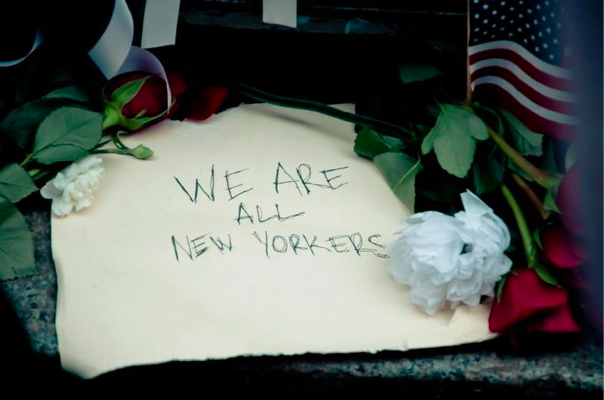 WE ARE
ALL
NEW YORKERS